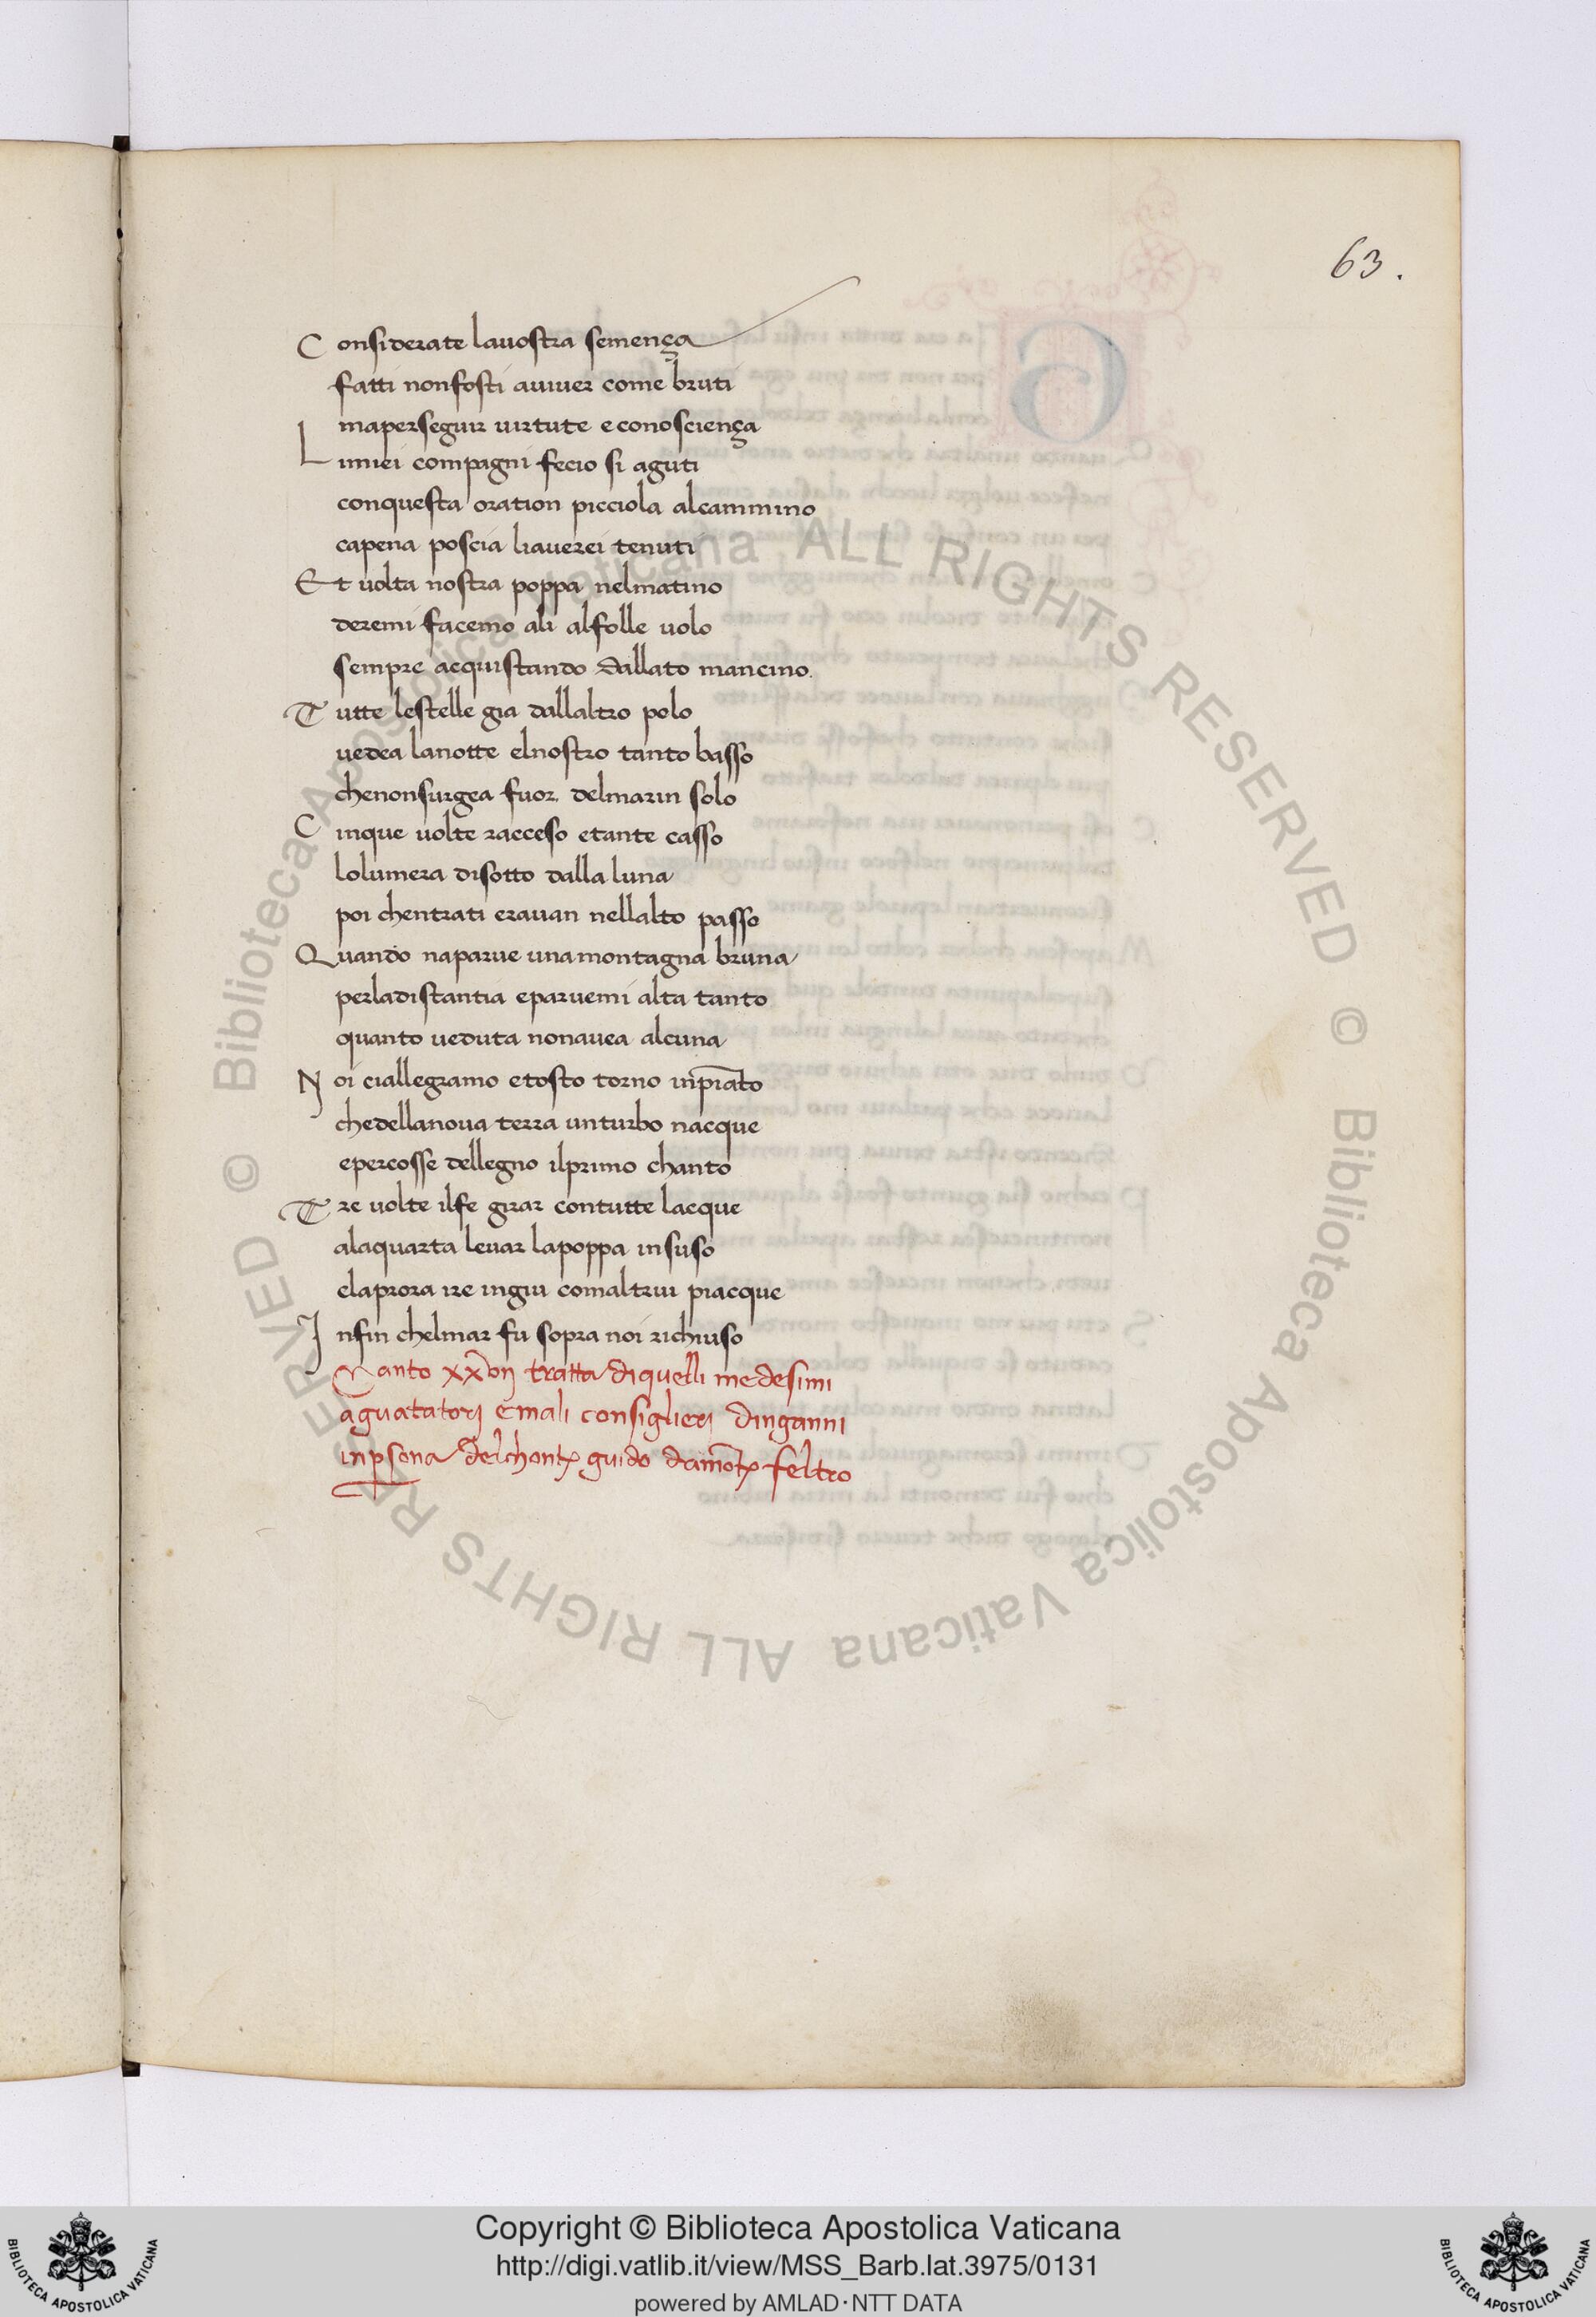 63.
Considerate lauostra semença
fatti nonfosti auiuer come bruti
maperseguir uirtute econosciença
Limiei compagni fecio si aguti
conquesta oration picciola alcammino
capena poscia liauerei tenuti
Et uolta nostra poppa nelmatino
deremi facemo ali alfolle uolo
sempre acquistando dallato mancino.
Tutte lestelle gia dallaltro polo
uedea lanotte elnostro tanto basso
chenonsurgea fuor. delmarin solo
Cinque uolte racceso etante casso
lolumera disotto dalla luna
poi chentrati erauan nellalto passo
Quando naparue unamontagna bruna
perladistantia eparuemi alta tanto
quanto ueduta nonauea alcuna
Noi ciallegramo etosto torno inpia͞to
chedellanoua terra unturbo nacque
epercosse dellegno ilprimo chanto
Tre uolte ilfe girar contutte lacque
alaquarta leuar lapoppa insuso
elaprora ire ingiu comaltrui piacque
Infin chelmar fu sopra noi richiuso
Canto xxvij tratta diquelli medesimi
aguatatorj emali consiglierj dinganni
inp̱sona delchonte guido damo͞te feltro
© Biblioteca Apostolica Vaticana ALL RIGHTS RESERVED © Biblioteca Apostolica Vaticana ALL RIGHTS RESERVED
Copyright © Biblioteca Apostolica Vaticana
http://digi.vatlib.it/view/MSS_Barb.lat.3975/0131
powered by AMLAD·NTT DATA
BIBLIOTECA APOSTOLICA VATICANA
BIBLIOTECA APOSTOLICA VATICANA